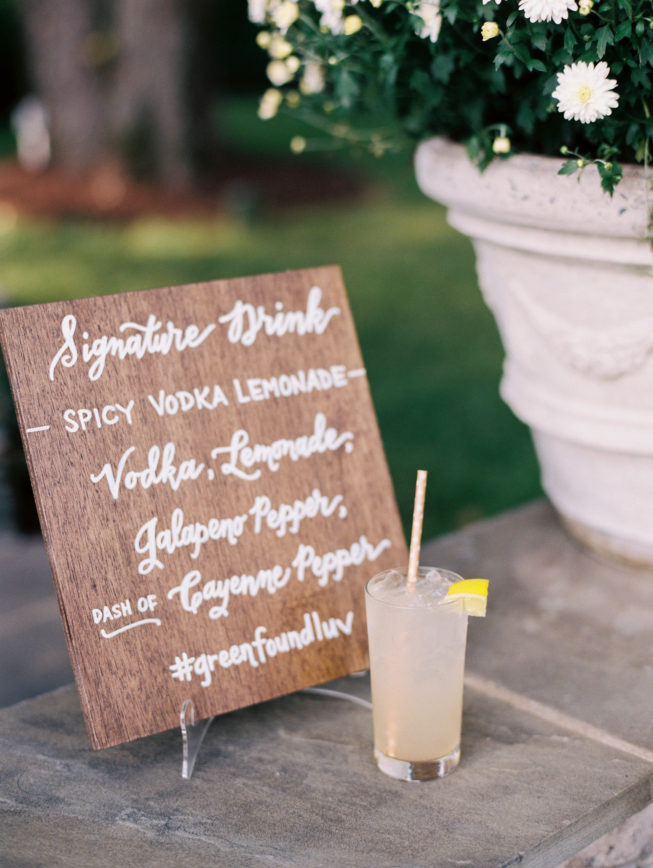 Signature Drink
— SPICY VODKA LEMONADE —
Vodka, Lemonade,
Jalapeno Pepper,
DASH OF Cayenne Pepper
#greenfoundluv